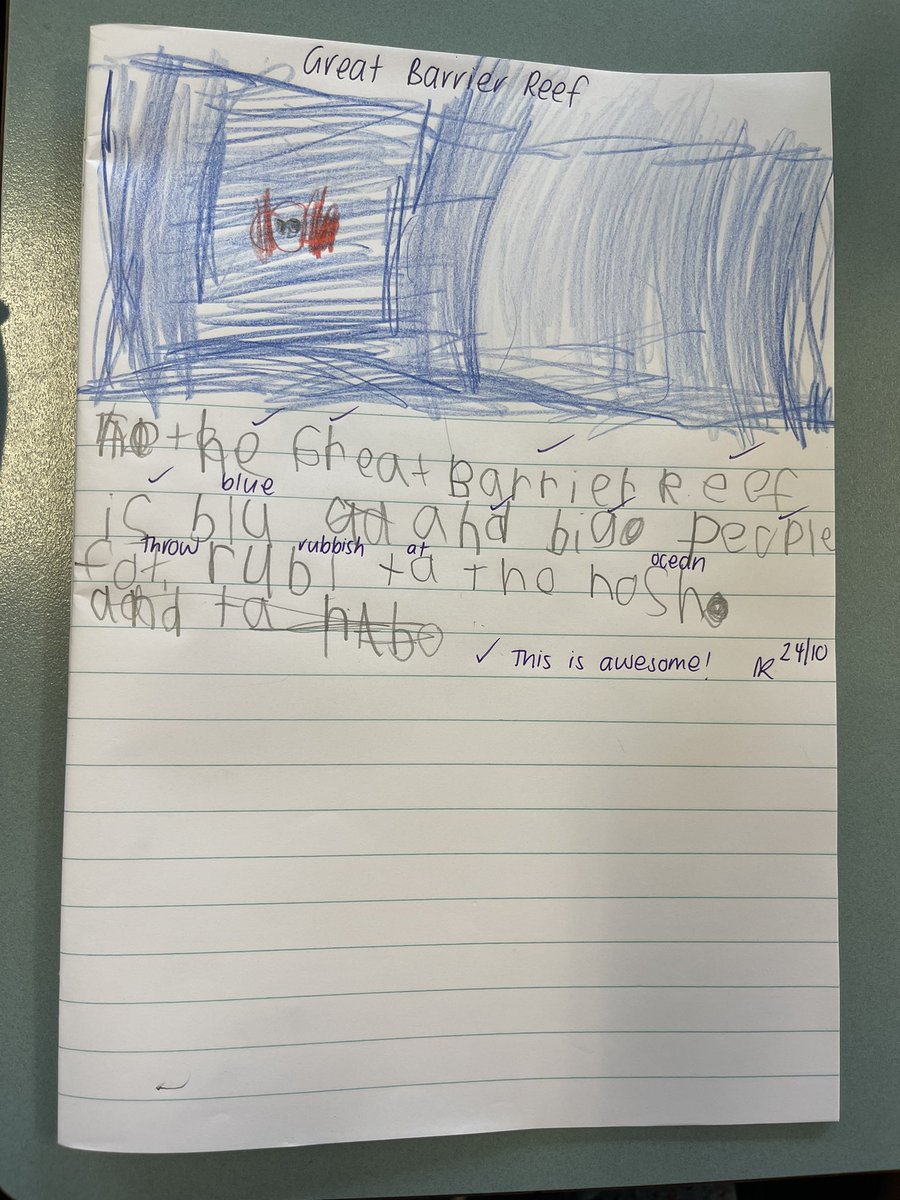 Great Barrier Reef
the Great Barrier Reef
blue
is blu and big people
throw rubbish at ocean
fot rubi ta tho nosh
and ta
This is awesome! AR 24/10